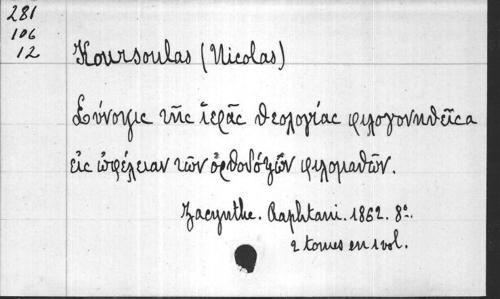 281
106
12
Koursoulas (Nicolas)
Σύνοψις τῆς ἱερᾶς θεολογίας φιλοπονηθεῖσα
εἰς ὠφέλειαν τῶν ὀρθοδόξων φιλομαθῶν.
Zacynthe. Raphtani. 1862. 8º.
2 tomes en 1 vol.